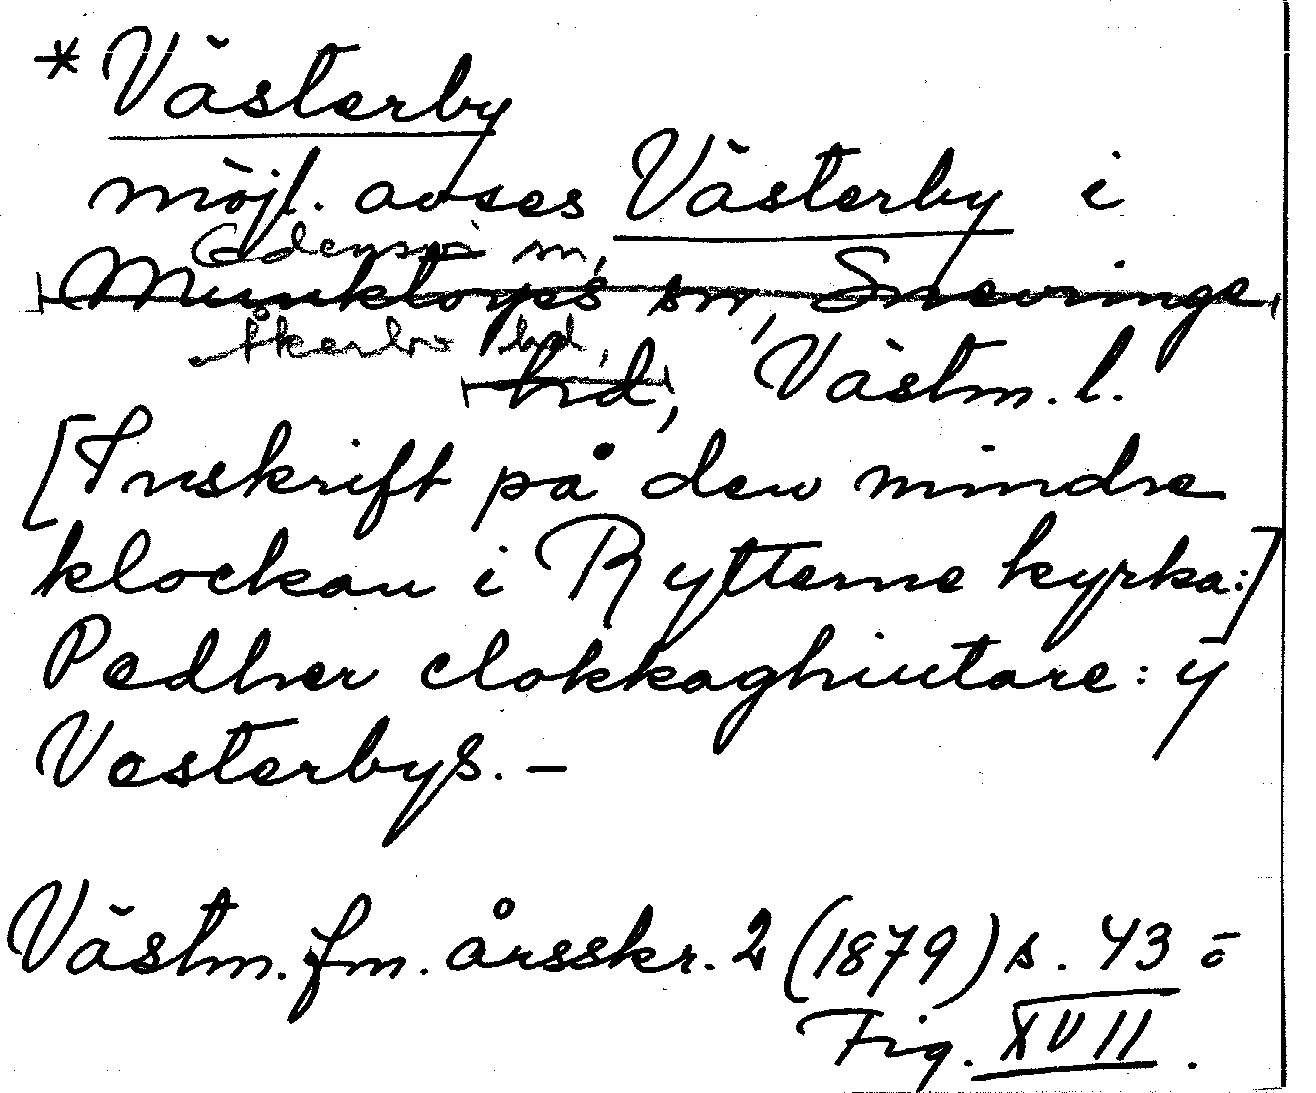 * Västerby
möjl. avses Västerby i
Odensvi sn,
Munktorps sn, Snevringe
Åkerbo hd,
hd, Västm. l.
[Inskrift på den mindre
klockan i Rytterne kyrka:]
Pedher clokkaghiutare: y
Vesterbys. –
Västm. fm. årsskr. 2 (1879) s. 43 o
Fig. XVII.